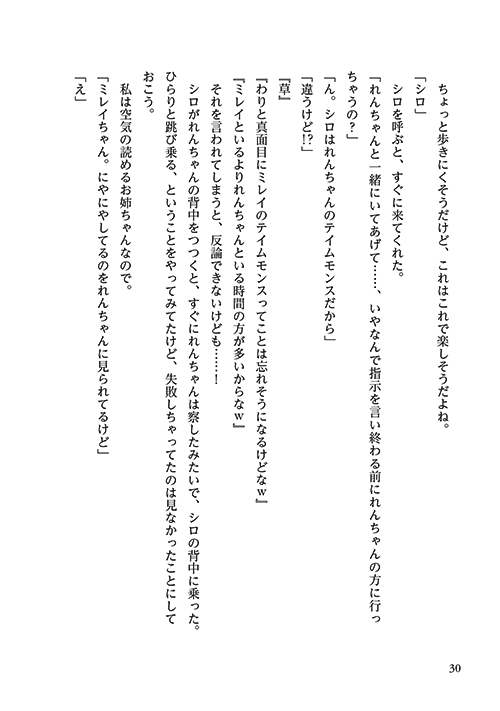 ちょっと歩きにくそうだけど、これはこれで楽しそうだよね。
「シロ」
シロを呼ぶと、すぐに来てくれた。
「れんちゃんと一緒にいてあげて……、いやなんで指示を言い終わる前にれんちゃんの方に行っ
ちゃうの？」
「ん。シロはれんちゃんのテイムモンスだから」
「違うけど!?」
『草』
『わりと真面目にミレイのテイムモンスってことは忘れそうになるけどなｗ』
『ミレイといるよりれんちゃんといる時間の方が多いからなｗ』
それを言われてしまうと、反論できないけども……！
シロがれんちゃんの背中をつつくと、すぐにれんちゃんは察したみたいで、シロの背中に乗った。
ひらりと跳び乗る、ということをやってみてたけど、失敗しちゃってたのは見なかったことにして
おこう。
私は空気の読めるお姉ちゃんなので。
「ミレイちゃん。にやにやしてるのをれんちゃんに見られてるけど」
「え」
30